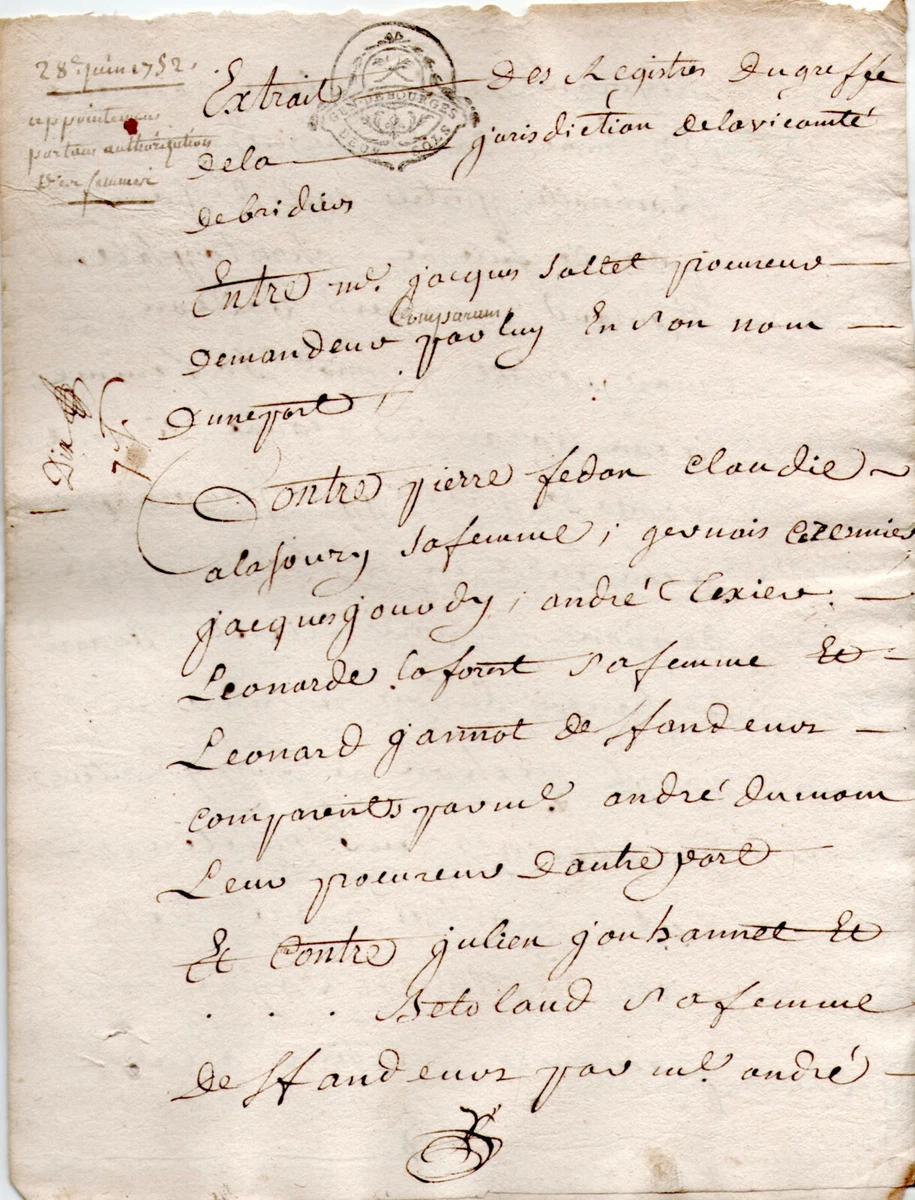 28e juin 1752
appointement
portant authorization
d'une femme
Extrait des Registres du greffe
GEN DE BOURGES
SOLS
dela jurisdiction delavicomté
debridiers
Entre me. jacques Sallet procureur
Comparant
demandeur par luy En Son nom
dunepart ;
Dix
7
Contre pierre fedon Claudie
alasoury safemme ; gervais
jacques jouvdy ; andré texier
Leonarde laforest sa femme Et
Leonard jannot deffandeurs
comparents par me. andré dumom
Leur procureur dautre part
Et Contre julien jouhannet Et
. . . Betolaud sa femme
deffandeurs par me. andré